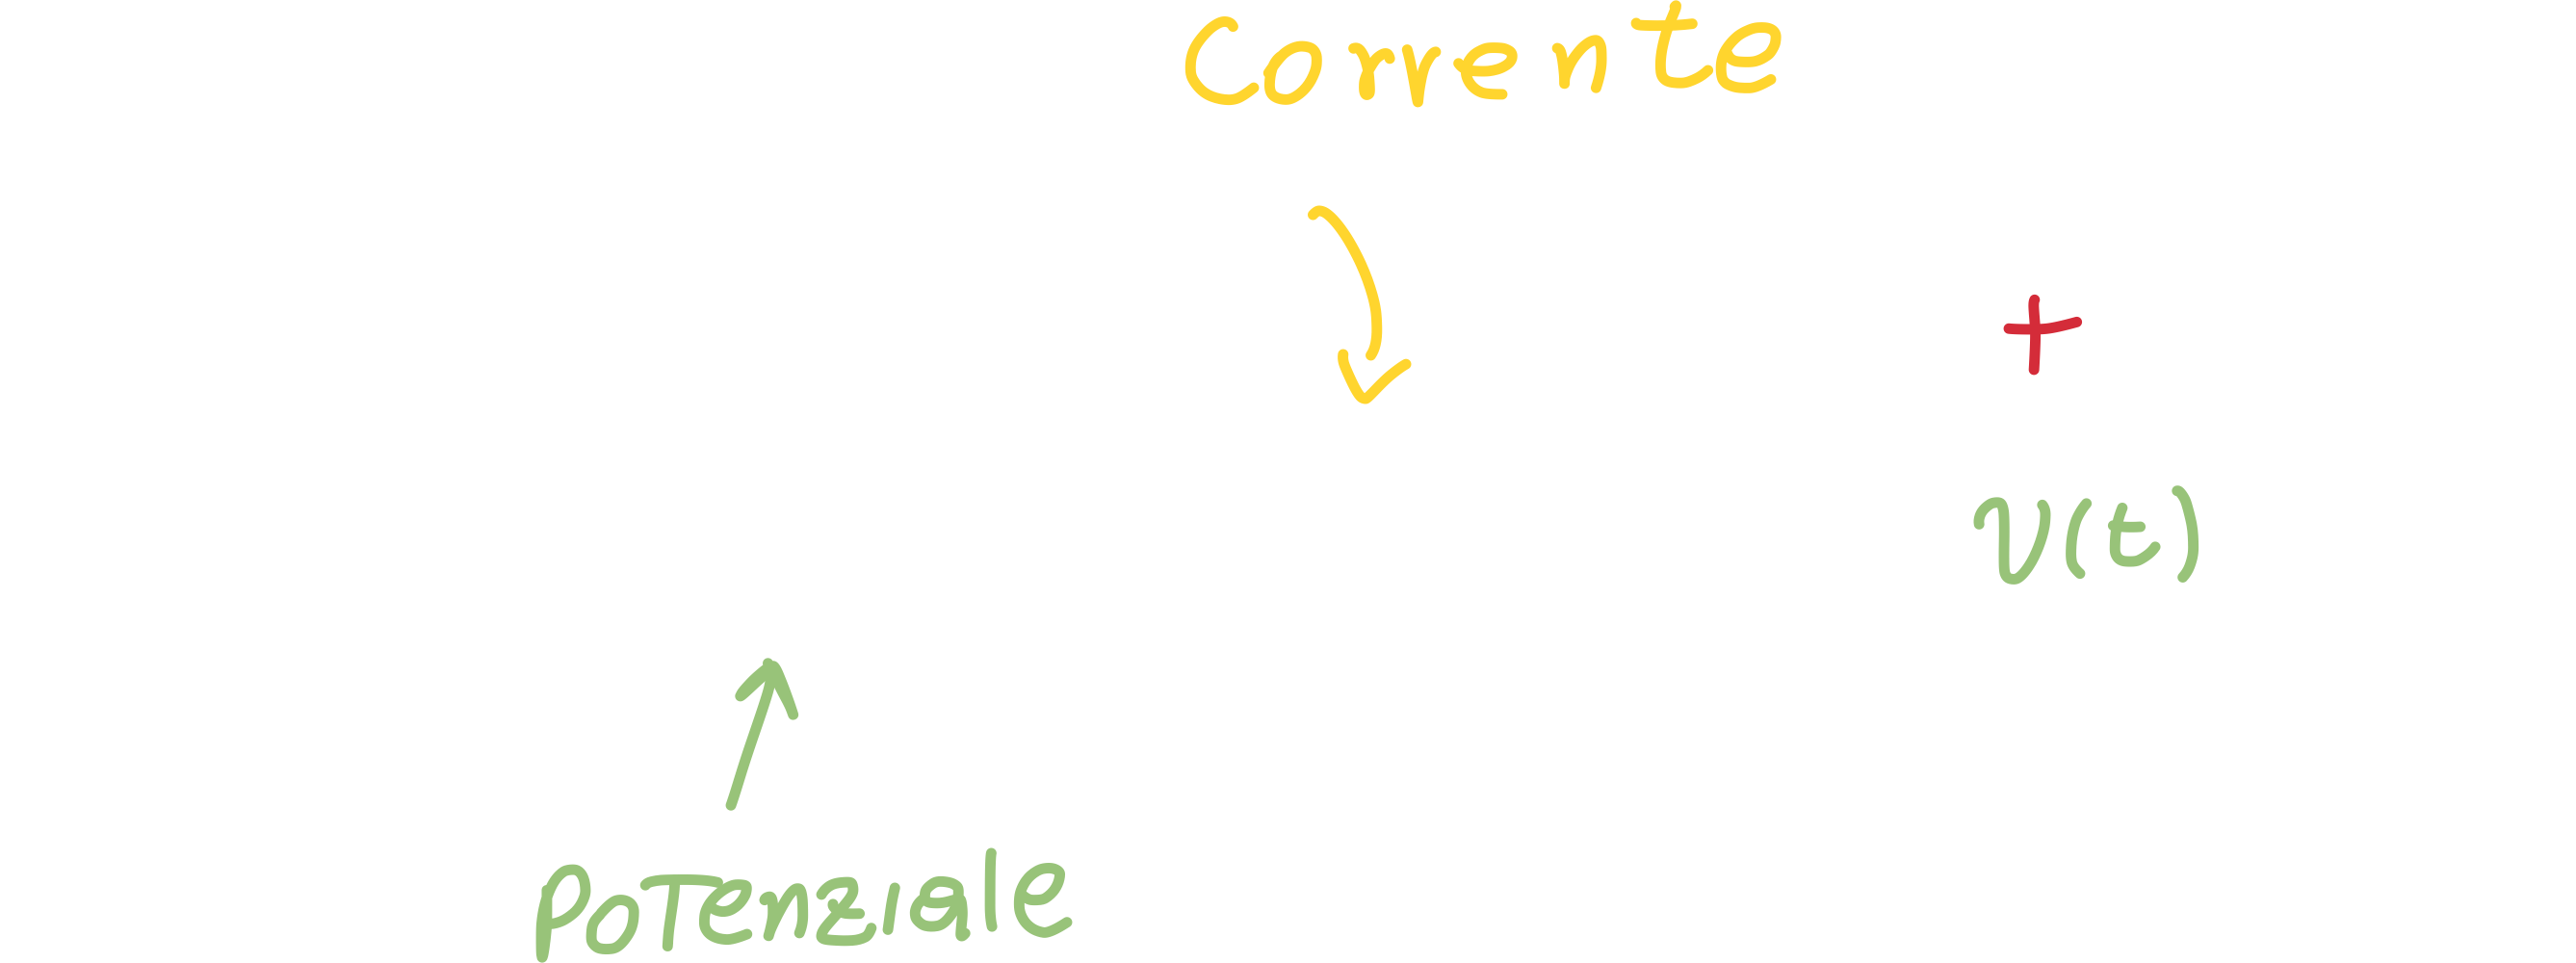 Corrente
+
v(t)
Potenziale